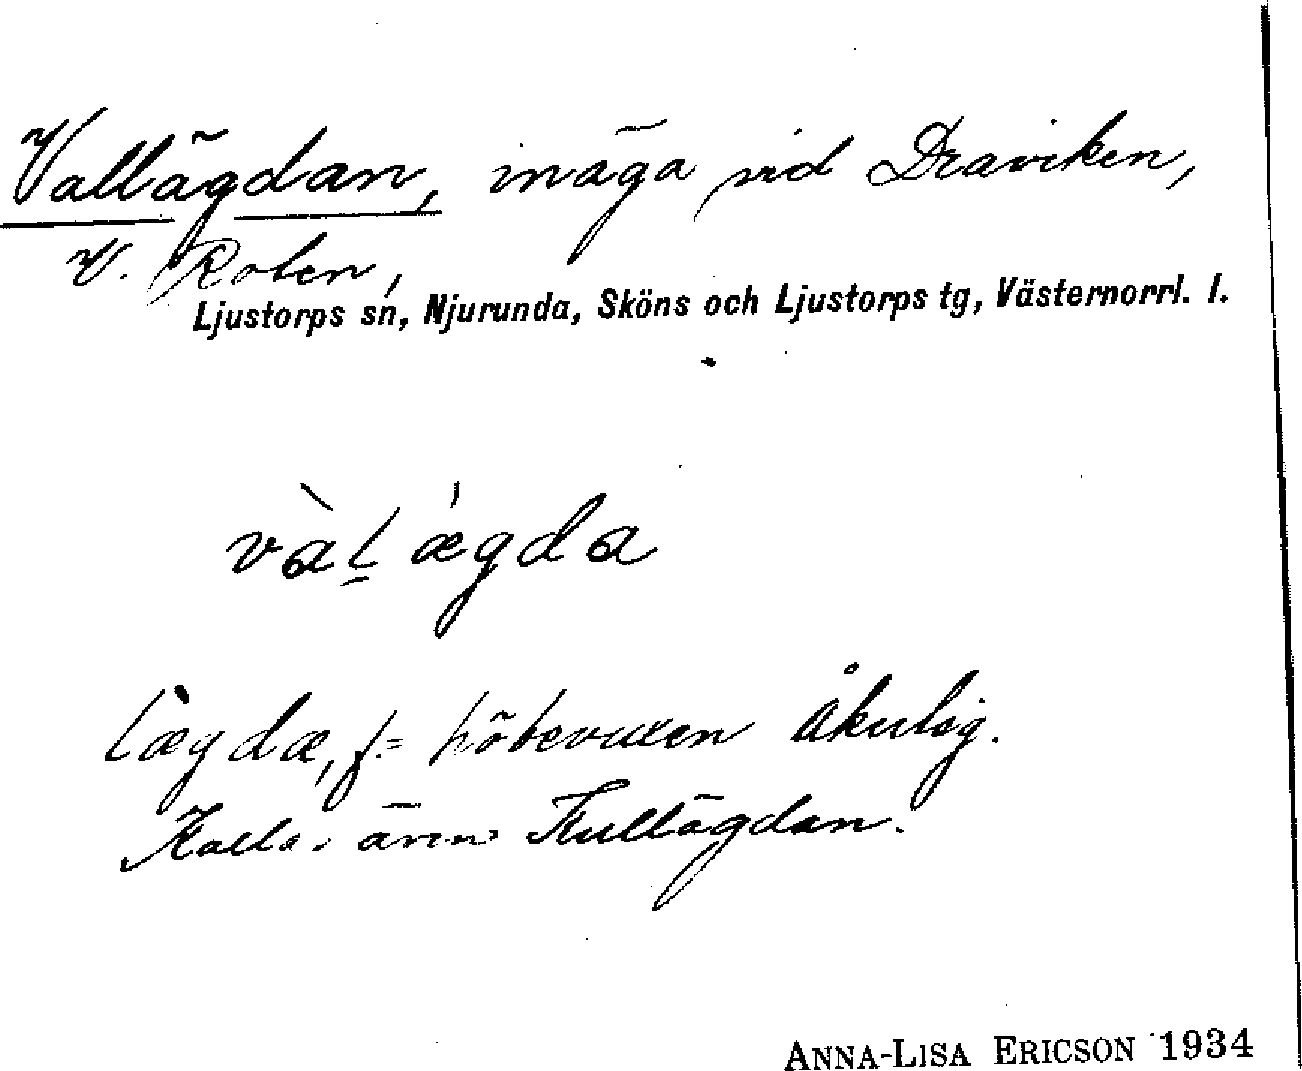 Vallägdan, inäga vid Draviken,
V. Rolen,
Ljustorps sn, Njurunda, Sköns och Ljustorps tg, Västernorrl. l.
vàlǽgda
lægdæ, f. = höbevuxen
Kallas även Kullägdan.
ANNA-LISA ERICSON 1934